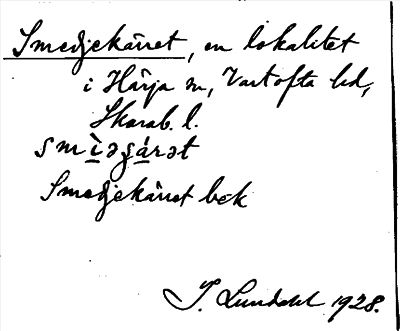 Smedjekärret, en lokalitet
i Härja sn, Vartofta hd,
Skarab. l.
smìəgá̱rət
Smedjekärret bek
I. Lundahl 1928.